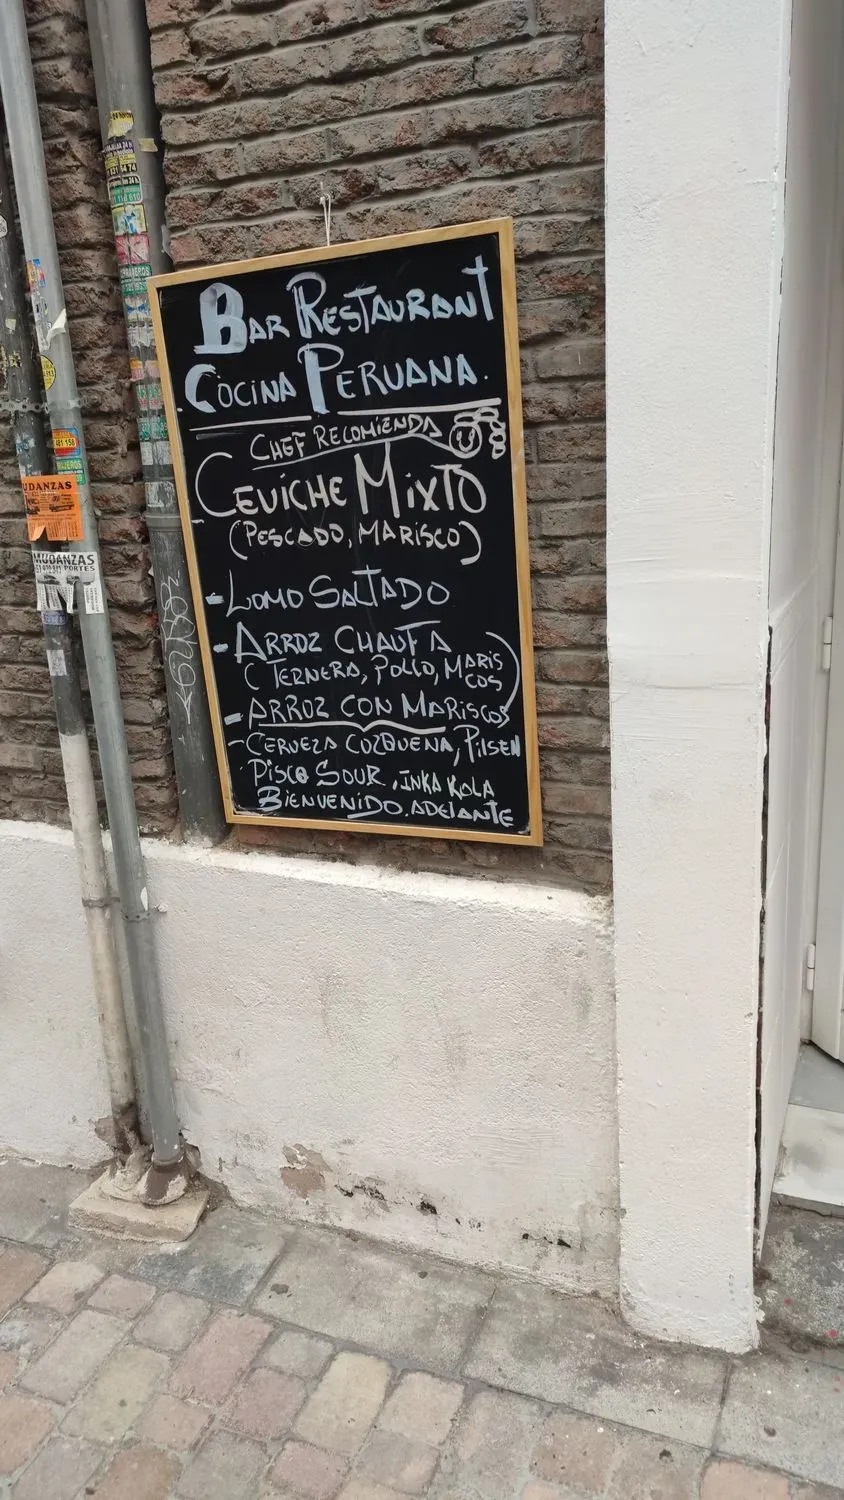 BAR RESTAURANT
COCINA PERUANA.
CHEF RECOMIENDA
CEVICHE MIXTO
(PESCADO, MARISCO)
- LOMO SALTADO
- ARROZ CHAUFA
(TERNERA, POLLO, MARIS
COS)
- ARROZ CON MARISCOS
- CERVEZA COZQUENA, PILSEN
PISCO SOUR, INKA KOLA
BIENVENIDO, ADELANTE
UDANZAS
MUDANZAS
PORTES